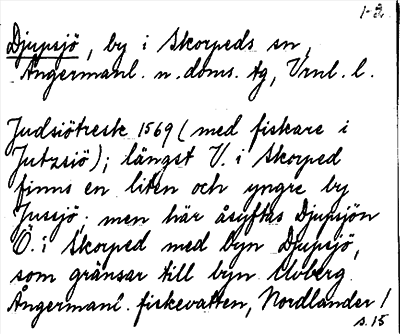 1-2.
Djupsjö, by i Skorpeds sn,
Ångermanl. n. doms. tg, Vrnl. l.
Judsiötresk 1569 (med fiskare i
Jutzsiö); längst V. i Skorped
finns en liten och yngre by
Jussjö; men här åsyftas Djupsjön
Ö. i Skorped med byn Djupsjö,
som gränsar till byn Ulvberg.
Ångermanl. fiskevatten, Nordlander 1
s. 15